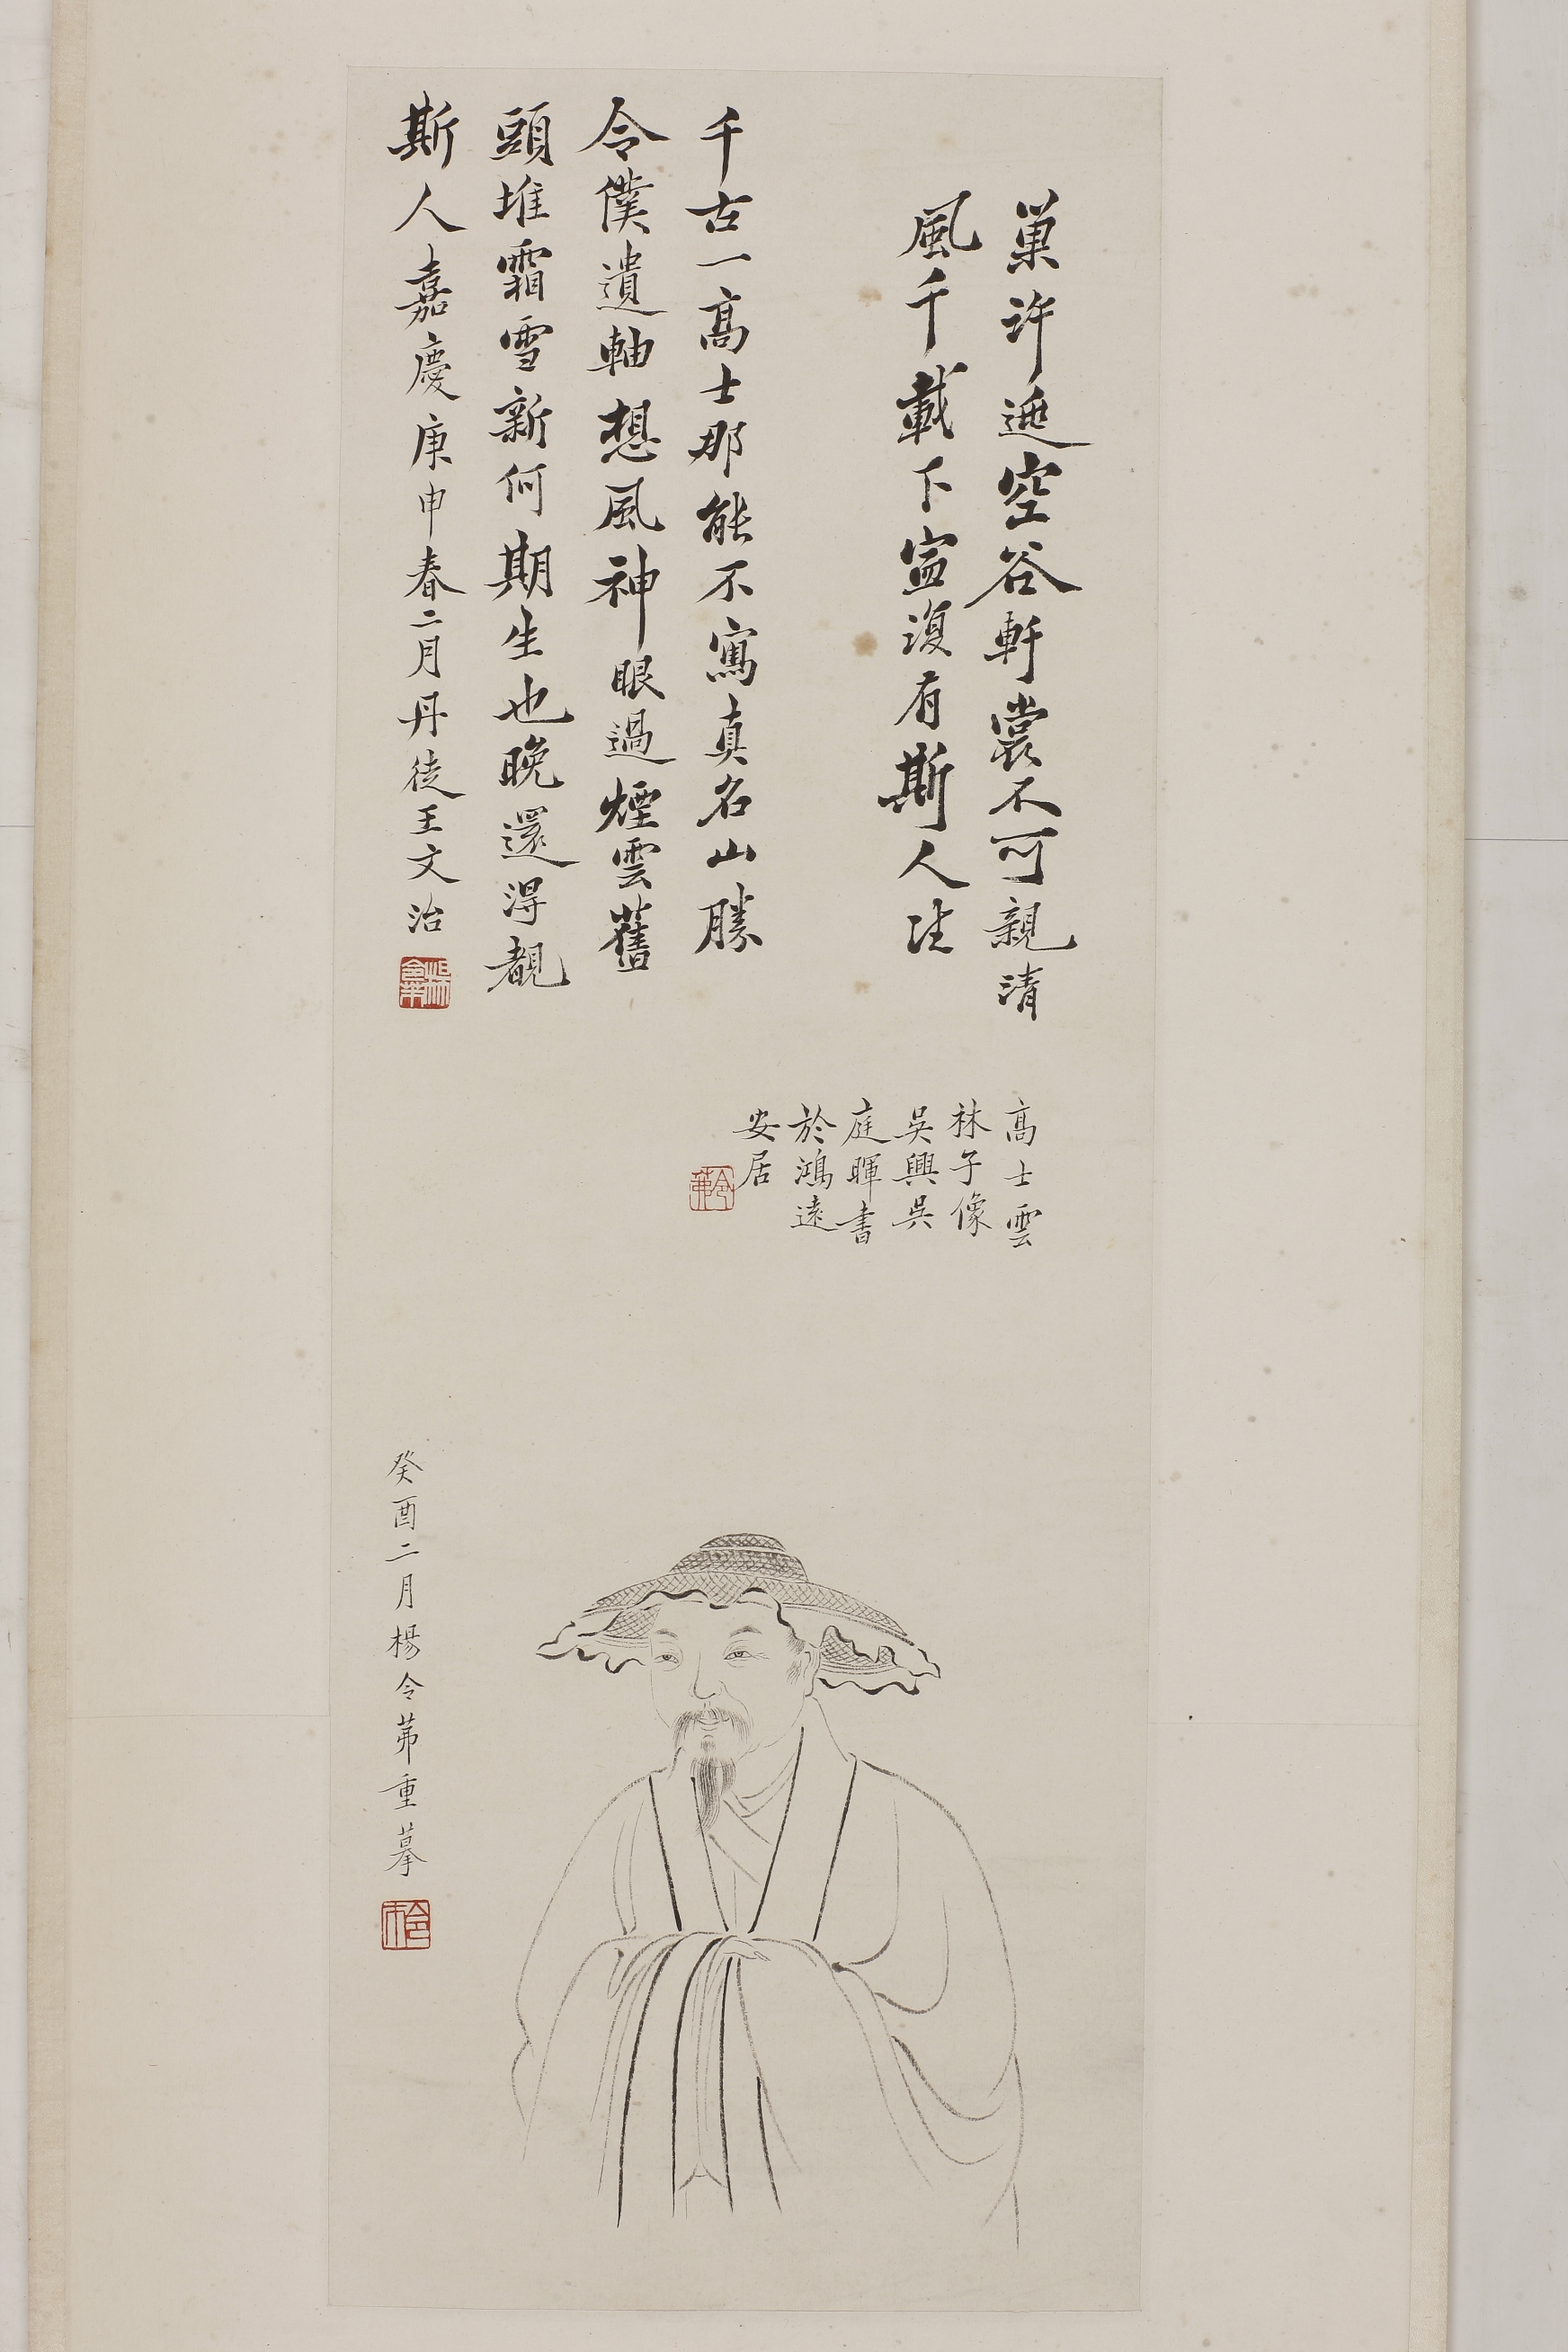 巢許遯空谷軒裳不可親清
風千載下寍復有斯人
千古一高士那能不寫真名山勝
令僕遺軸想風神眼過煙雲舊
頭堆霜雪新何期生也晚還得覩
斯人嘉慶庚申春二月丹徒王文治
高士雲
林子像
吳興吳
庭暉書
於鴻遠
安居
癸酉二月楊令茀重摹
令茀